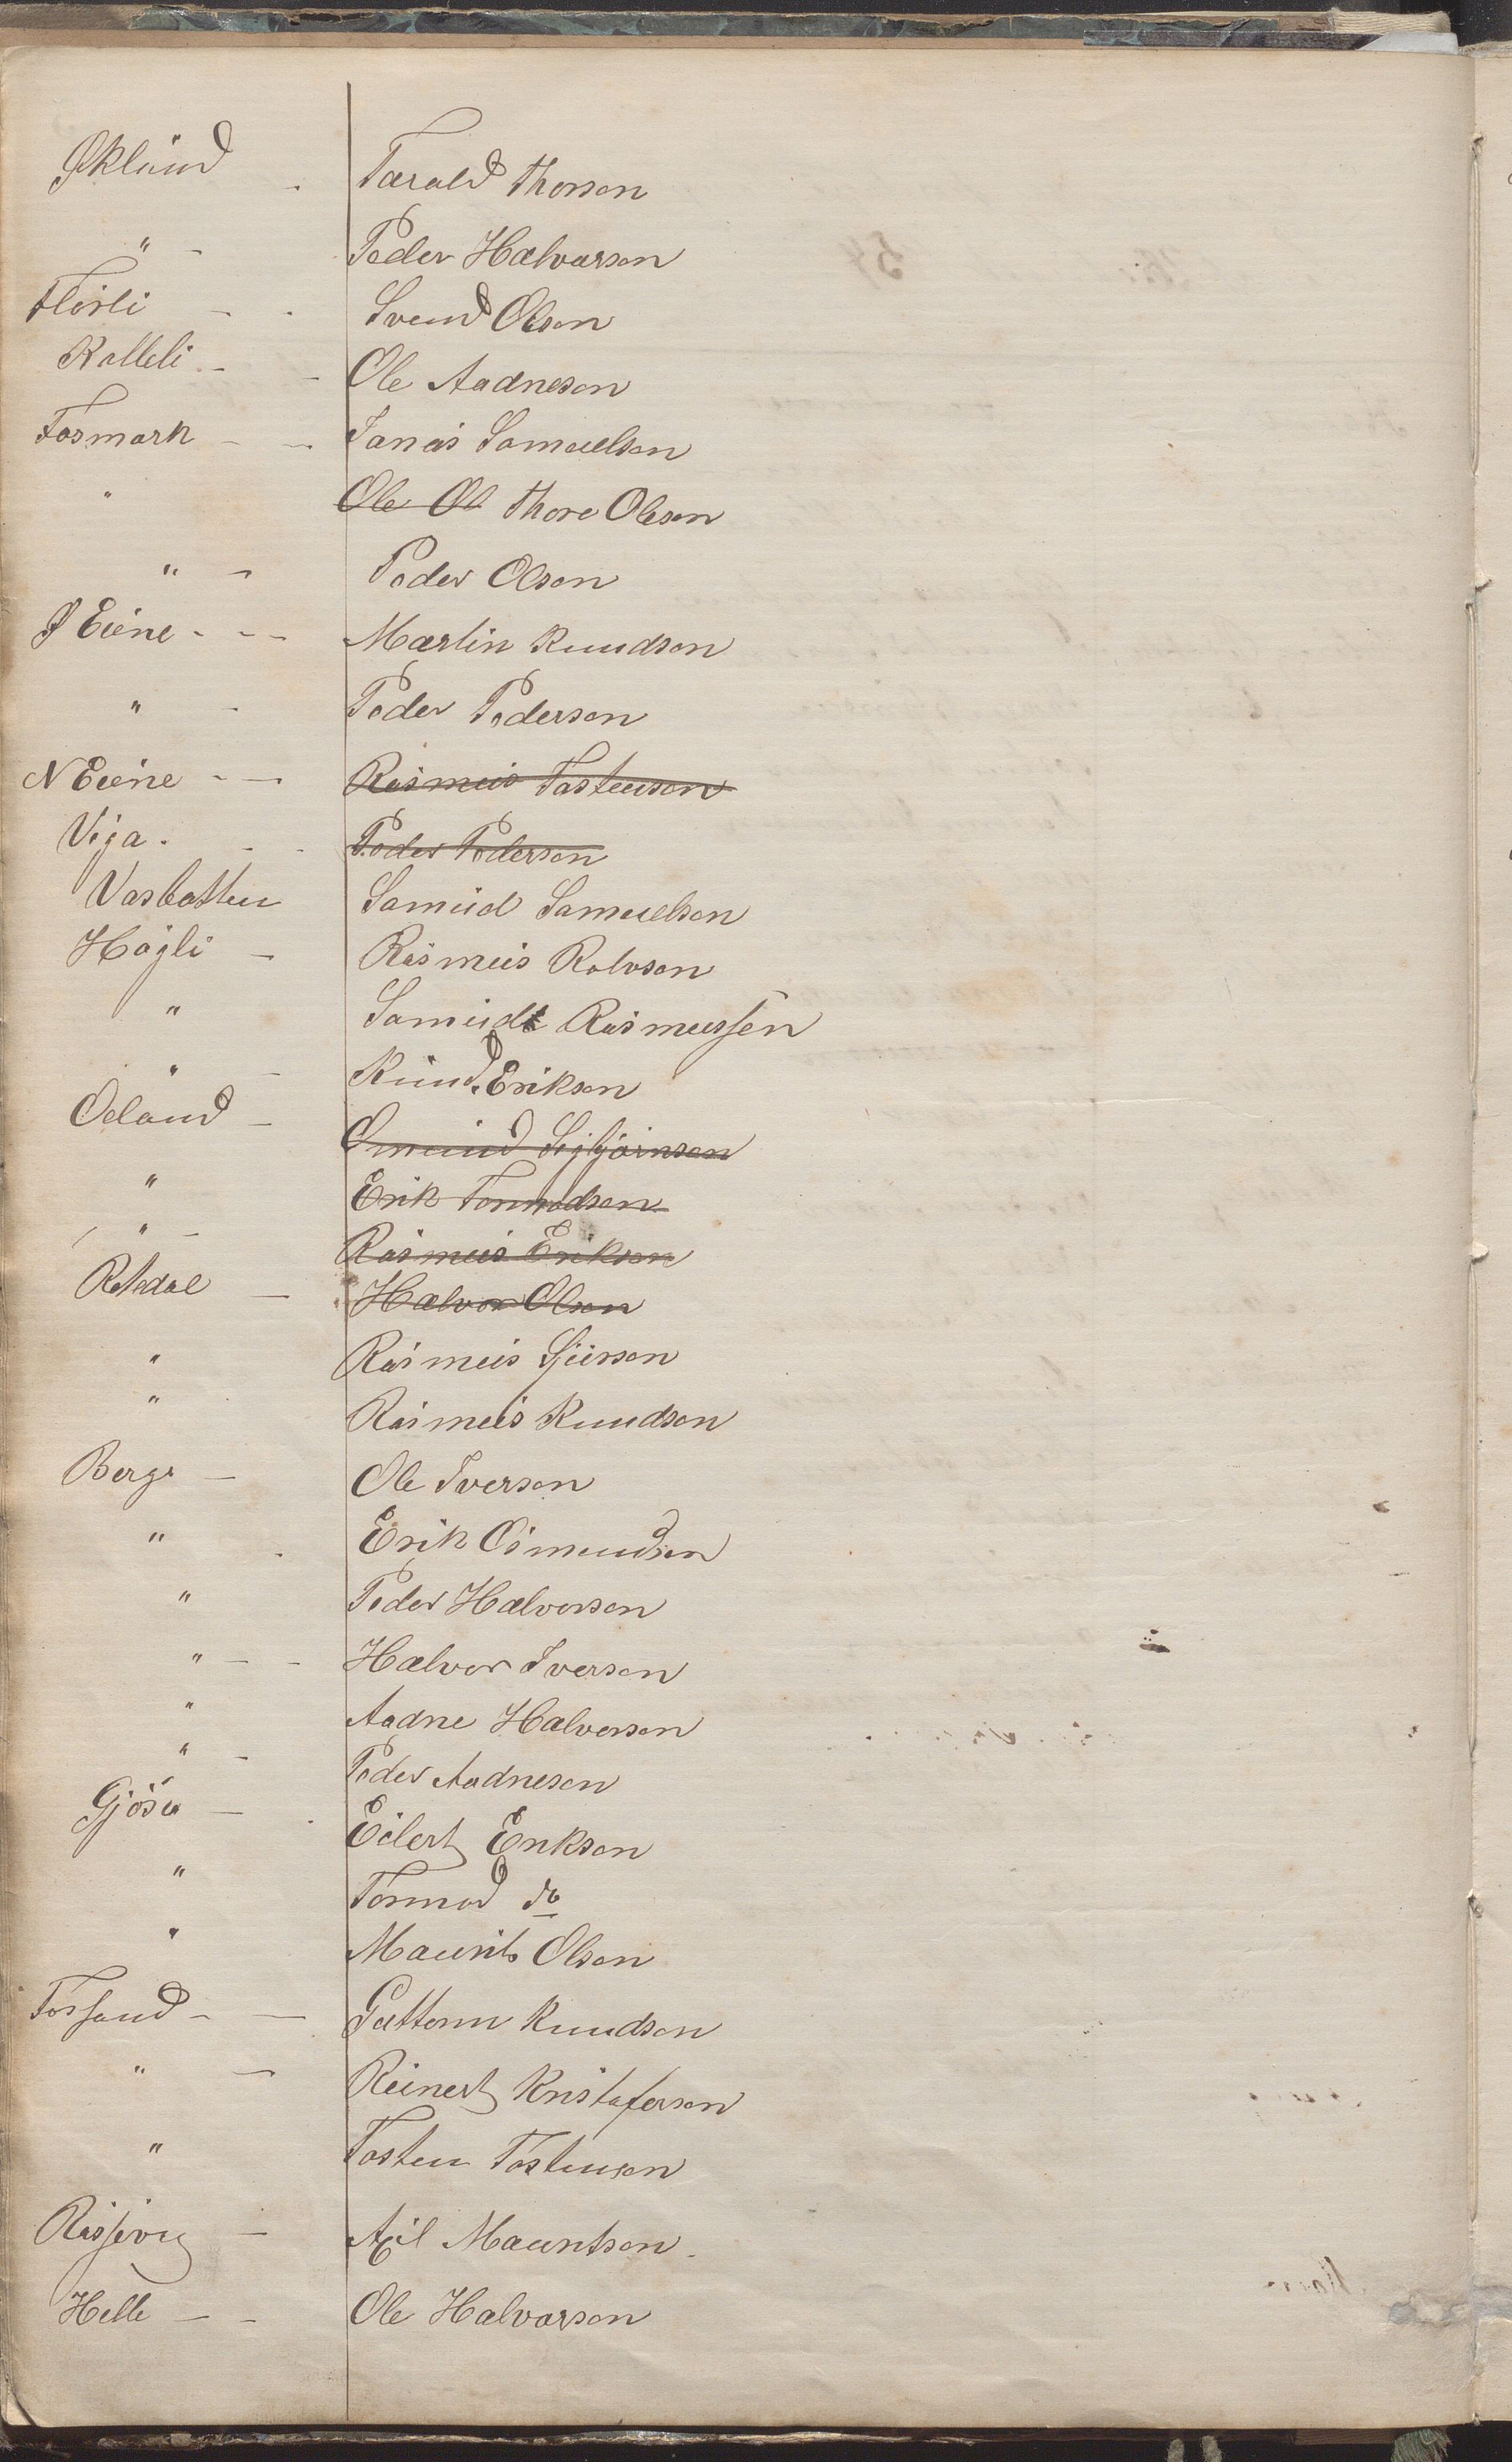 Øklund - Tarald Thorson
" - Peder Halvarson
Flörli - - Svend Olson
Kalleli - - Ole Aadneson
Fosmark - - Jonas Samuelson
" Ole Ol Thore Oleson
" - Peder Olson
Ø Eiene - - - Martin Knudson
" - Peder Pederson
N Eiene - - Rasmus Tosteuson
Viga - - - Peder Pederson
Vasbotten Samuel Samuelson
Högli - Rasmus Rolvson
" Samuel Rasmussen
" - Knud Erikson
Oeland - Omund Sigbjörnson
" Erik Tormodson
" - Rasmus Erikson
Rettedal - Halvor Olson
" Rasmus Sjurson
" Rasmus Knudson
Berge - Ole Iverson
" - Erik Osmundson
" Peder Halvorson
" - - Halvor Iverson
" Aadne Halvorson
" - Peder Aadneson
Gjöse - . Eilert Erikson
" Tormod do
" Maurits Olson
Forsand - - Guttorm Knudson
" - Reinert Kristoferson
" Tosten Tostenson
Rossevig - Axil Mauritson -
Helle - - Ole Halvorson